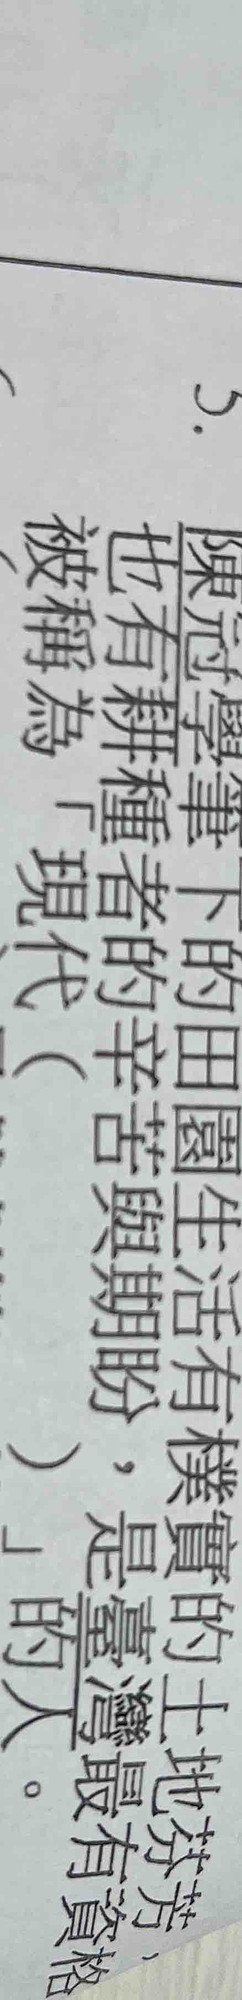 5.
陳冠學筆下的田園生活有樸實的土地芬芳，
也有耕種者的辛苦與期盼，是臺灣最有資格
被稱為「現代（　　　）」的人。